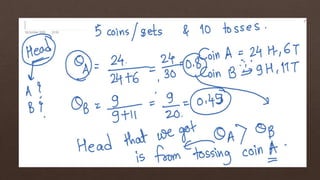 5 coins/sets & 10 tosses.
Head
A ?
B ?
θA = 24 / 24+6 = 24 / 30 = 0.8
Coin A = 24 H, 6 T
Coin B → 9 H, 11 T
θB = 9 / 9+11 = 9 / 20 = 0.45
Head that we got θA > θB
is from tossing coin A.